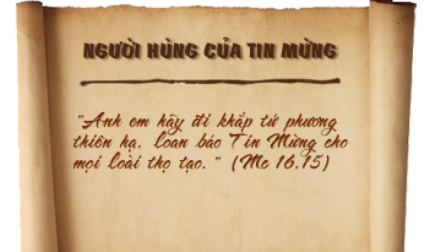 NGƯỜI HÙNG CỦA TIN MỪNG
"Anh em hãy đi khắp tứ phương
thiên hạ, loan báo Tin Mừng cho
mọi loài thọ tạo." (Mc 16,15)